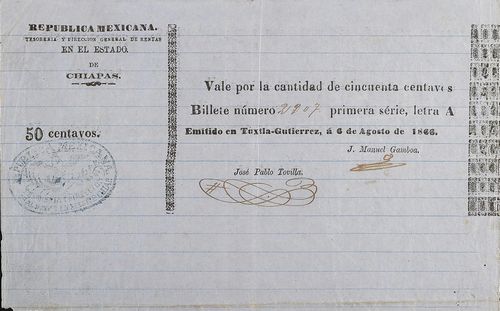 REPUBLICA MEXICANA.
TESORERIA Y DIRECCION GENERAL DE RENTAS
EN EL ESTADO.
DE
CHIAPAS.
50 centavos.
Vale por la cantidad de cincuenta centavos
Billete número 2907 primera série, letra A
Emitido en Tuxtla-Gutierrez, á 6 de Agosto de 1866.
J. Manuel Gamboa.
José Pablo Tovilla.